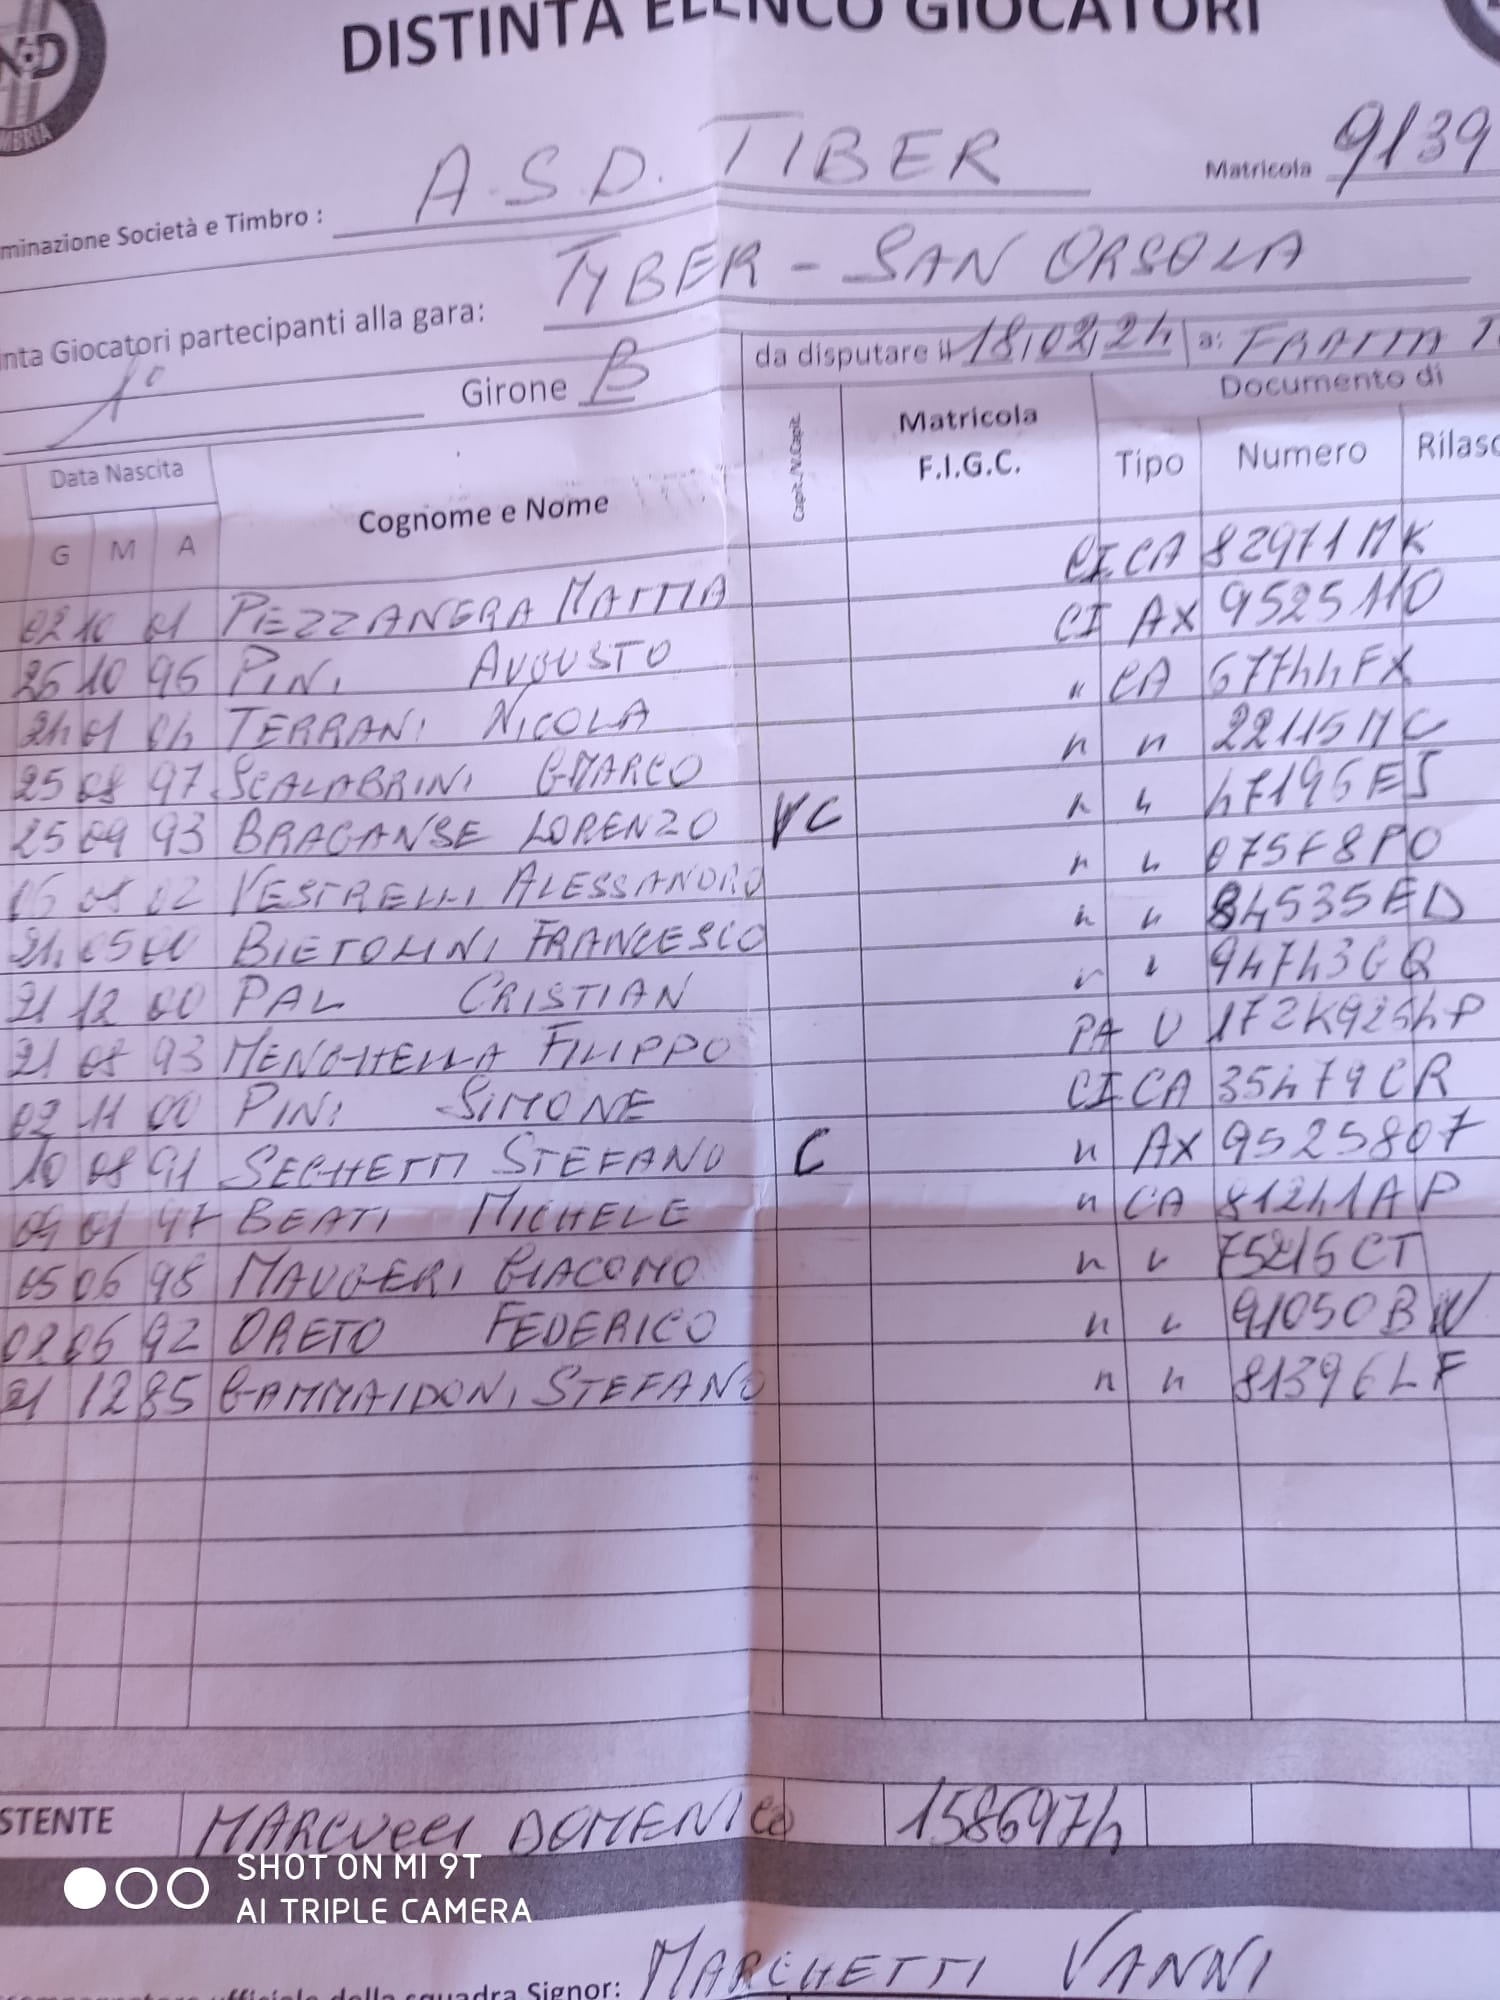 DISTINTA ELENCO GIOCATORI
MBRIA
minazione Società e Timbro : A.S.D. TIBER Matricola 9139
inta Giocatori partecipanti alla gara: TYBER - SAN ORSOLA
1° Girone B da disputare il 18,02,24 a: FRATTA T
Data Nascita Cognome e Nome Capit./V.Capit. Matricola F.I.G.C. Documento di
G M A Tipo Numero Rilasc
02 10 01 PEZZANERA MATTIA CI CA 82971MK
25 10 95 PINI AUGUSTO CI AX 9525110
24 01 04 TERRANI NICOLA " CA 67744FX
25 08 97 SCALABRINI G.MARCO " " 22115MC
25 09 93 BRAGANSE LORENZO VC " " 47195ES
08 02 VESTRELLI ALESSANDRO " "
21 05 00 BIETOLINI FRANCESCO " " 84535ED
21 12 00 PAL CRISTIAN " " 94743GQ
21 08 93 MENGHELLA FILIPPO PA U
02 11 00 PINI SIMONE CI CA 35479CR
10 08 91 SEGHETTI STEFANO C " AX 9525807
09 01 97 BEATI MICHELE " CA 81241AP
05 06 98 MAUGERI GIACOMO " " 75216CT
02 06 92 ORETO FEDERICO " " 91050BW
21 12 85 GAMMAIDONI STEFANO " " 81396LF
STENTE MARCUCCI DOMENICO 1586974
SHOT ON MI 9T
AI TRIPLE CAMERA
ufficiale della squadra Signor: MARCHETTI VANNI